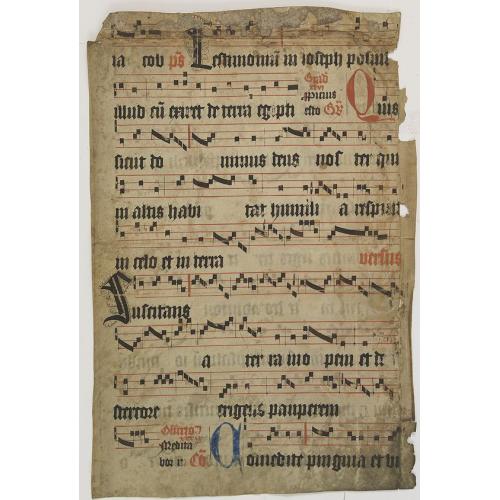 ia cob ps Testimoniū in ioseph posuit
illud cū exiret de terra egypti
ppicius esto Gr Quis
sicut do minus deus nos ter qui
in altis habi tat humili a respicit
in celo et in terra versus
Suscitans
a ter ra ino pem et de
stercore erigens pauperem
Medita
bor i Cō Comedite pinguia et bi